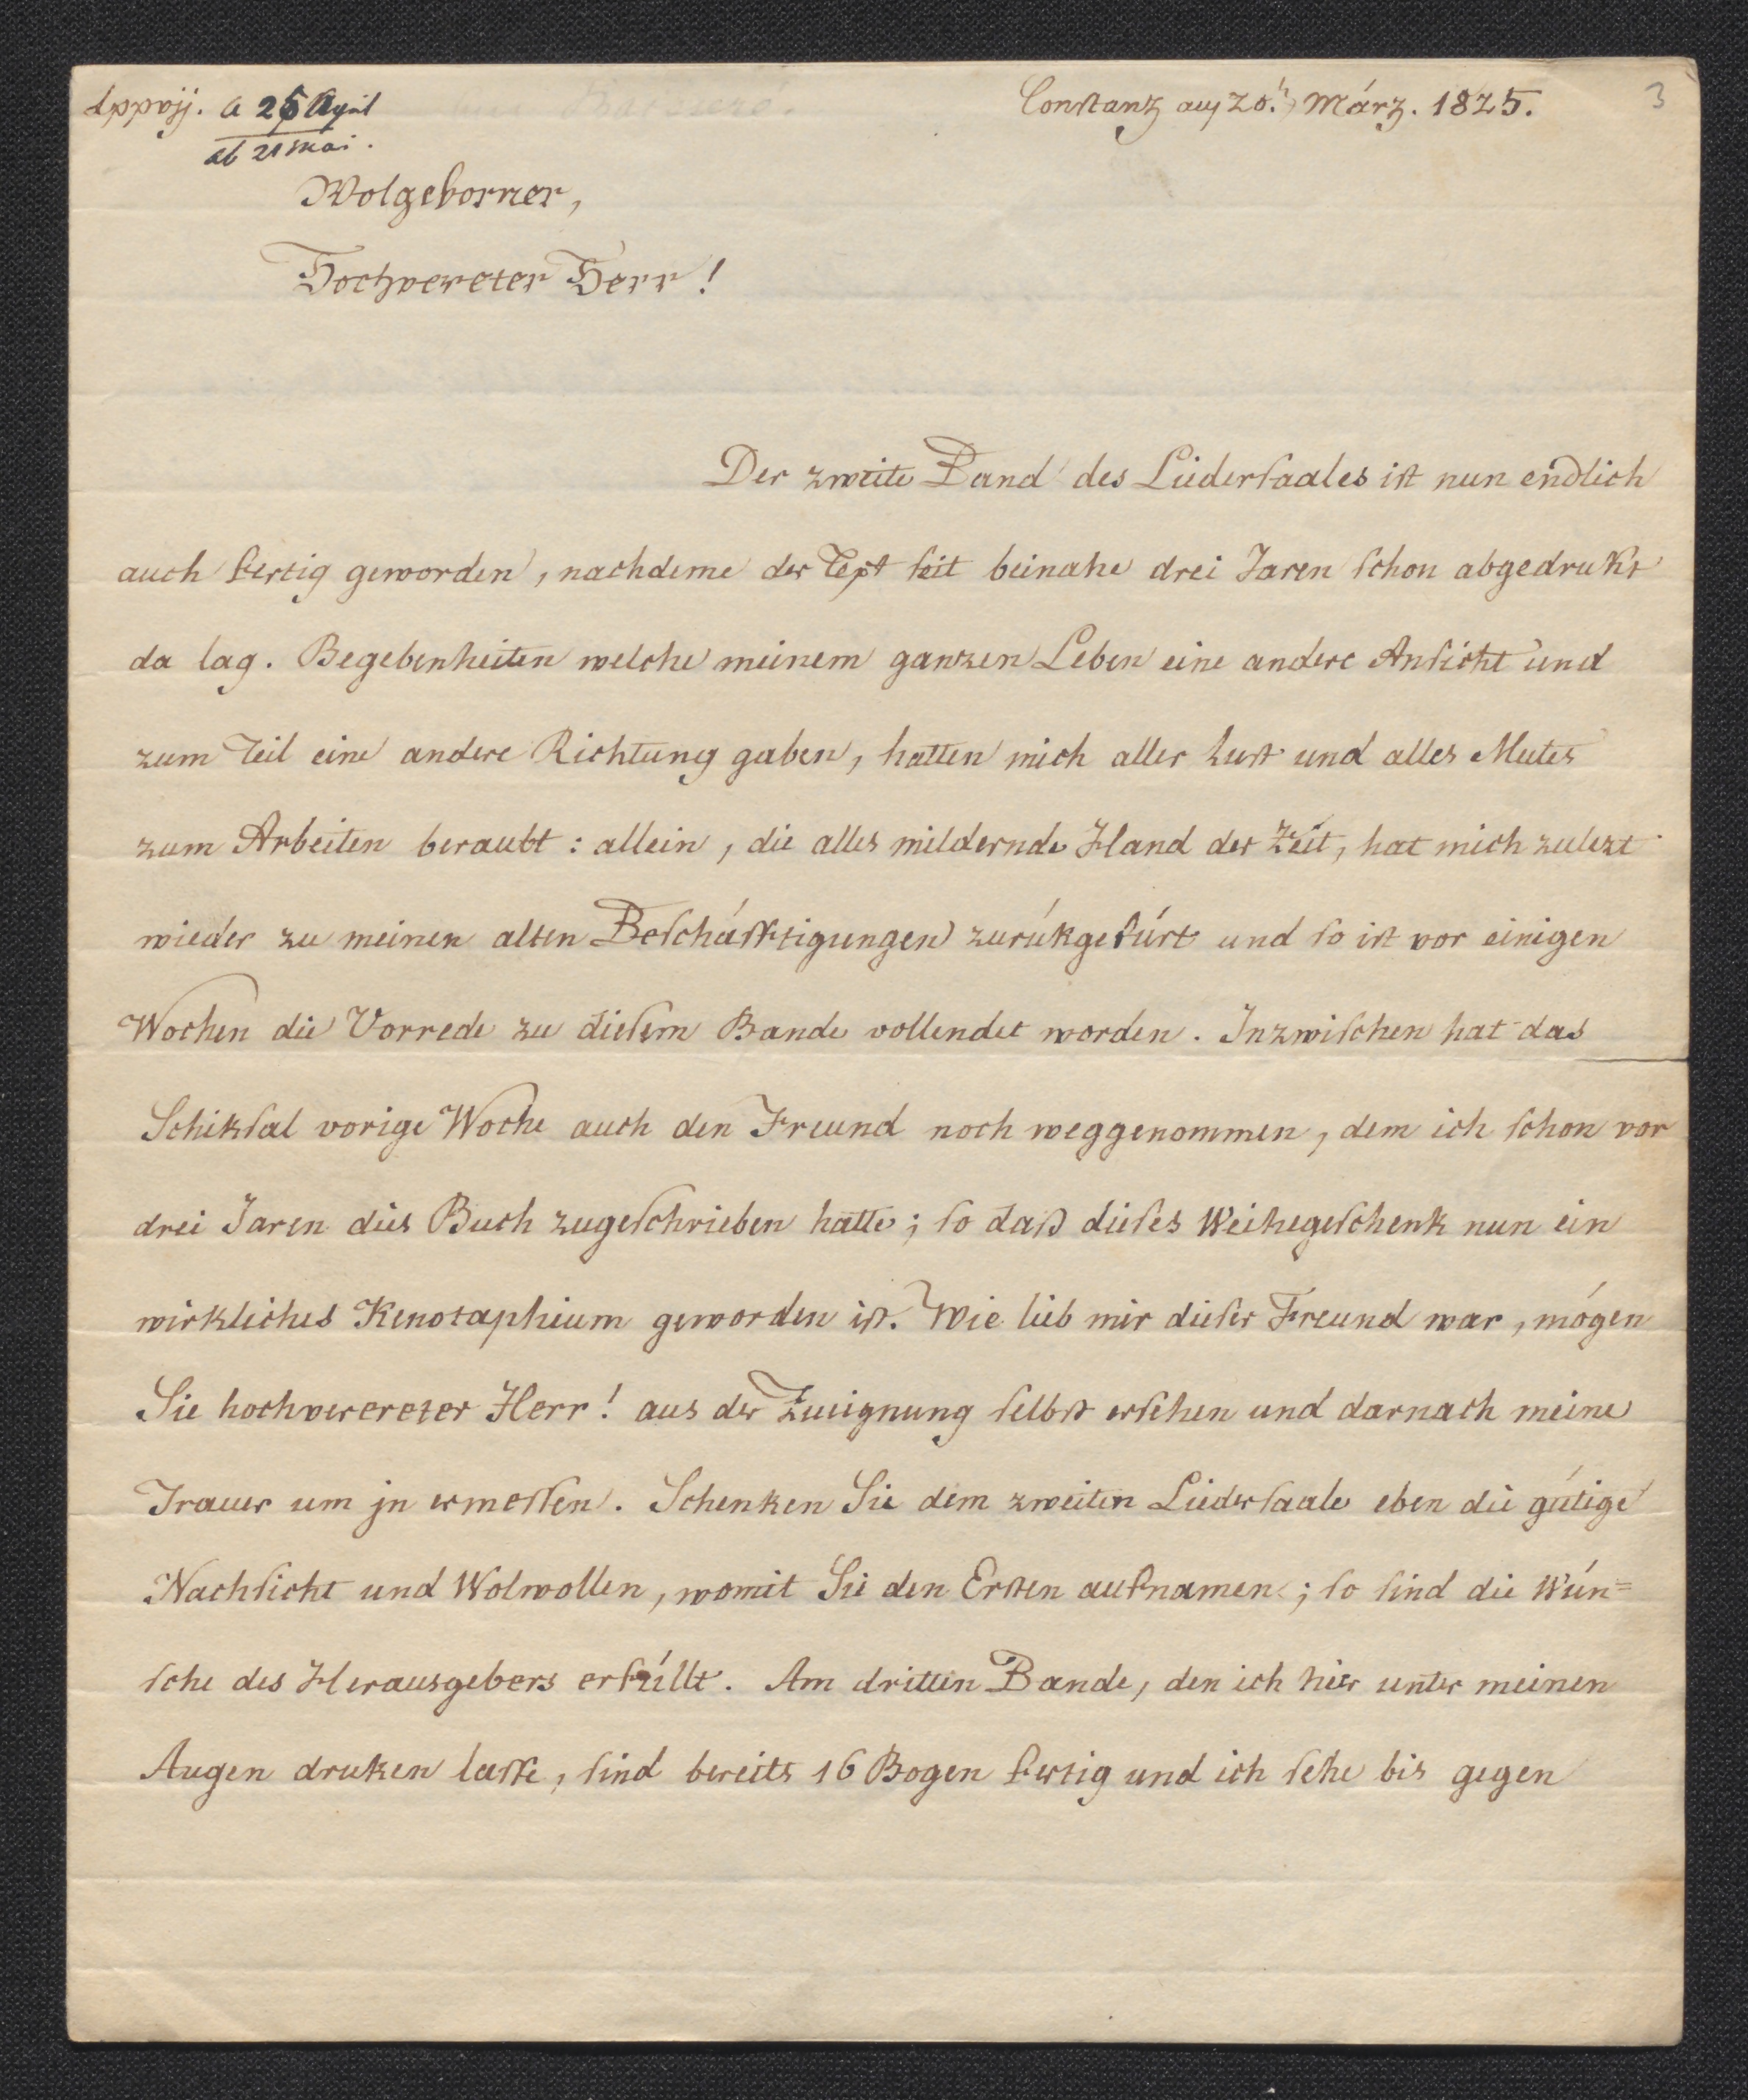 Constanz am 20.n März. 1825.
3
a 25 April
ab 21 Mai.
Wolgeborner,
Hochvereter Herr!
Der zweite Band des Liedersaales ist nun endlich
auch fertig geworden, nachdeme der Text seit beinahe drei Jaren schon abgedrukt
da lag. Begebenheiten welche meinem ganzen Leben eine andere Ansicht und
zum Teil eine andere Richtung gaben, hatten mich aller Lust und alles Mutes
zum Arbeiten beraubt: allein, die alles mildernde Hand der Zeit, hat mich zulezt
wieder zu meinen alten Beschäfftigungen zurükgefürt und so ist vor einigen
Wochen die Vorrede zu diesem Bande vollendet worden. Inzwischen hat das
Schiksal vorige Woche auch den Freund noch weggenommen, dem ich schon vor
drei Jaren dies Buch zugeschrieben hatte; so daß dieses Weihegeschenk nun ein
wirkliches Kenotaphium geworden ist. Wie lieb mir dieser Freund war, mögen
Sie hochvererter Herr! aus der Zueignung selbst ersehen und darnach meine
Trauer um jn ermessen. Schenken Sie dem zweiten Liedersaale eben die gütige
Nachsicht und Wolwollen, womit Sie den Ersten aufnamen; so sind die Wün=
sche des Herausgebers erfüllt. Am dritten Bande, den ich hier unter meinen
Augen druken lasse, sind bereits 16 Bogen fertig und ich sehe bis gegen